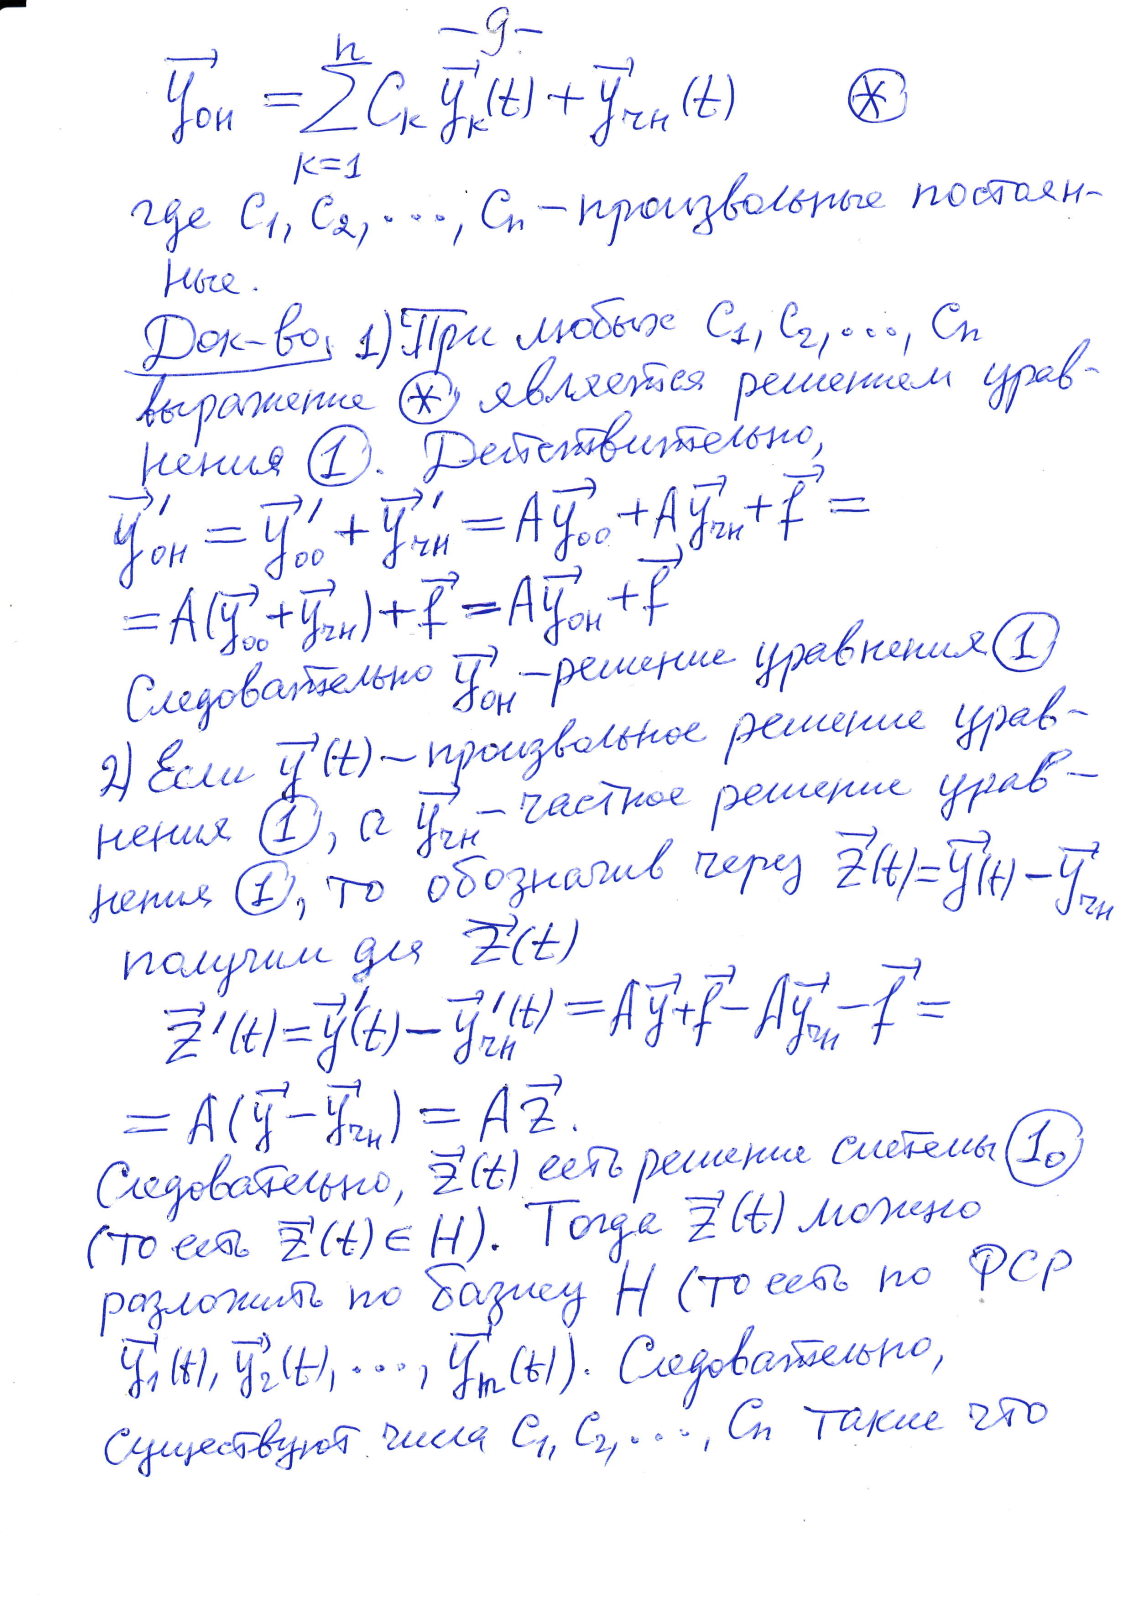 – 9 –
$\vec{y}_{он} = \sum_{k=1}^{n} C_k \vec{y}_k(t) + \vec{y}_{чн}(t)$ ⊛
где $C_1, C_2, \ldots, C_n$ – произвольные постоян-
ные.
Док-во. 1) При любых $C_1, C_2, \ldots, C_n$
выражение ⊛ является решением урав-
нения ①. Действительно,
$\vec{y}'_{он} = \vec{y}'_{оо} + \vec{y}'_{чн} = A\vec{y}_{оо} + A\vec{y}_{чн} + \vec{f} =$
$= A(\vec{y}_{оо} + \vec{y}_{чн}) + \vec{f} = A\vec{y}_{он} + \vec{f}$
Следовательно $\vec{y}_{он}$ – решение уравнения ①
2) Если $\vec{y}(t)$ – произвольное решение урав-
нения ①, а $\vec{y}_{чн}$ – частное решение урав-
нения ①, то обозначив через $\vec{z}(t) = \vec{y}(t) - \vec{y}_{чн}$
получим для $\vec{z}(t)$
$\vec{z}'(t) = \vec{y}'(t) - \vec{y}'_{чн}(t) = A\vec{y} + \vec{f} - A\vec{y}_{чн} - \vec{f} =$
$= A(\vec{y} - \vec{y}_{чн}) = A\vec{z}.$
Следовательно, $\vec{z}(t)$ есть решение системы (1₀)
(то есть $\vec{z}(t) \in H$). Тогда $\vec{z}(t)$ можно
разложить по базису H (то есть по ФСР
$\vec{y}_1(t), \vec{y}_2(t), \ldots, \vec{y}_m(t)$). Следовательно,
существуют числа $C_1, C_2, \ldots, C_n$ такие что